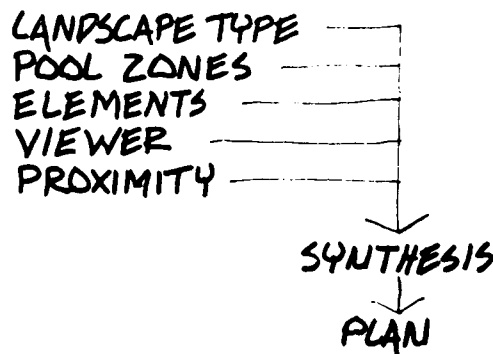 LANDSCAPE TYPE
POOL ZONES
ELEMENTS
VIEWER
PROXIMITY
SYNTHESIS
PLAN